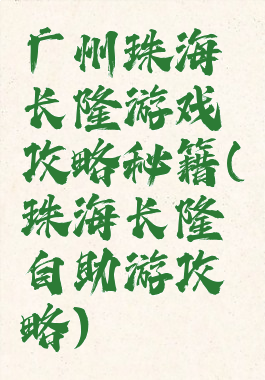 广州珠海
长隆游戏
攻略秘籍(
珠海长隆
自助游攻
略)